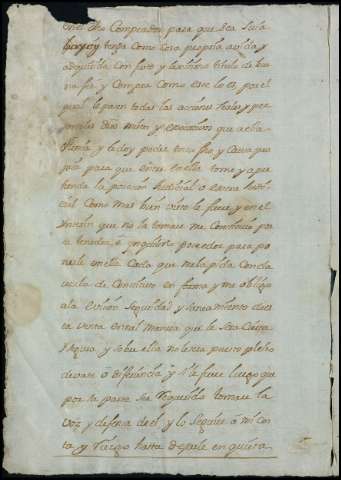 en el dho Comprador para que sea suia
la tenga como cosa propria avida y
adquirida con justo y lexitimo titulo de bue
na fee y Compra Como este lo es, por el
qual le paso todas las acciones Reales y per
sonales dros mixtos y executibos que a ella
thenia y le doy poder en su fho y Causa pro
pria para que entre en ella tome y apre
henda la posecion Judicial o extra Judi
cial Como mas bien visto le fuere y en el
Ynterin que no la tomare me Constituio por
su tenedor e ynquilino poseedor para po
nerle en ella Cada que me la pida Con cla
usula de Constituto en forma y me obligo
a la evision seguridad y saneamiento de es
ta venta en tal manera que le sera Cierta
y segura y sobre ella no le sera puesto pleito
devate o diferencia y si le fuere luego que
por su parte sea rrequerido tomare la
voz y defensa de el y lo seguire a mi cos
ta y Riesgo hasta dejarle en quieta